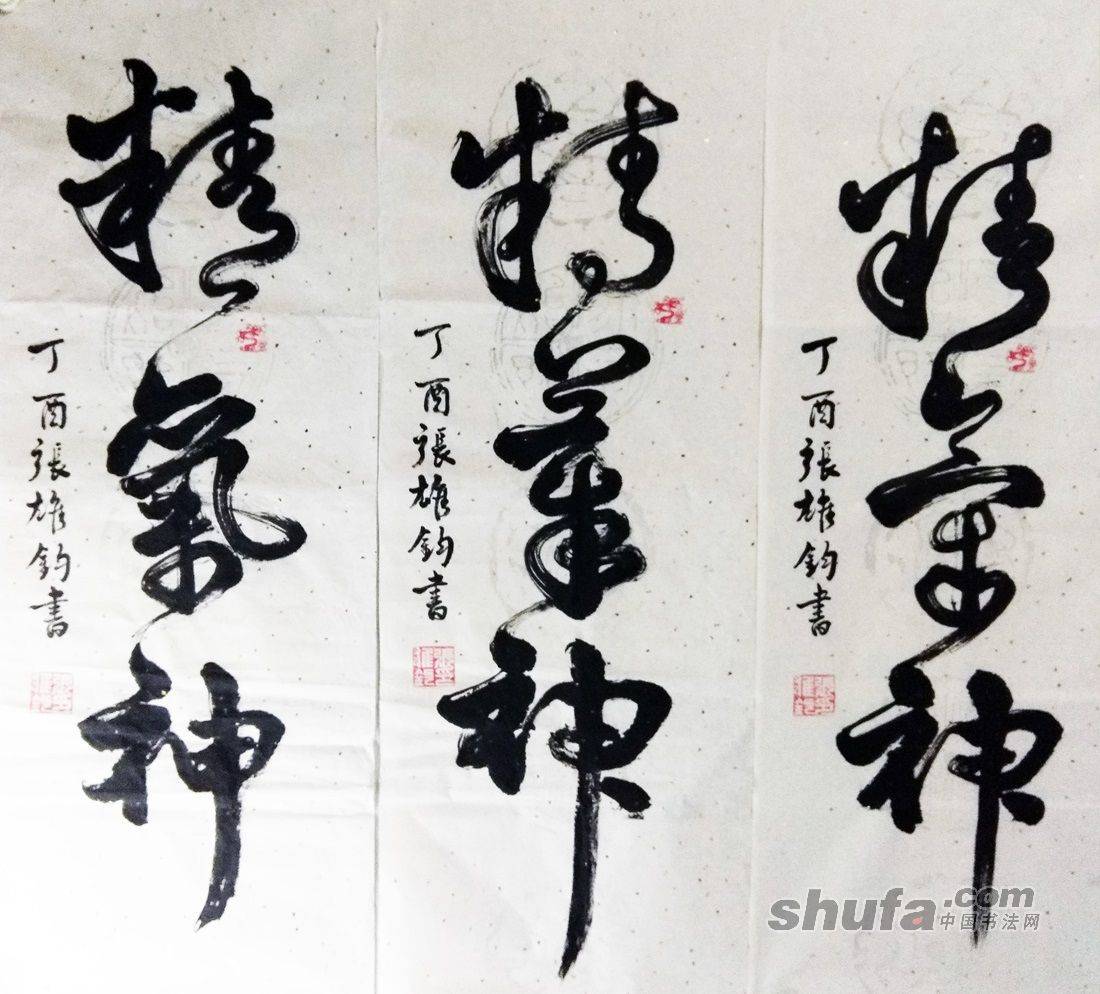 精氣神
丁酉張雄鈞書
精氣神
丁酉張雄鈞書
精氣神
丁酉張雄鈞書
shufa.com
中国书法网